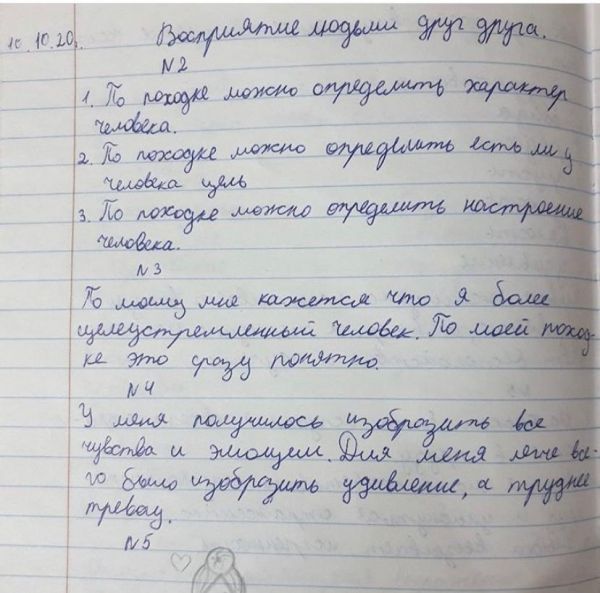 10.10.20. Восприятие людьми друг друга.
N2
1. По походке можно определить характер
человека.
2. По походке можно определить есть ли у
человека цель
3. По походке можно определить настроение
человека.
N3
По моему мне кажется что я более
целеустремленный человек. По моей поход-
ке это сразу понятно.
N4
У меня получилось изобразить все
чувства и эмоции. Для меня легче все-
го было изобразить удивление, а труднее
тревогу.
N5